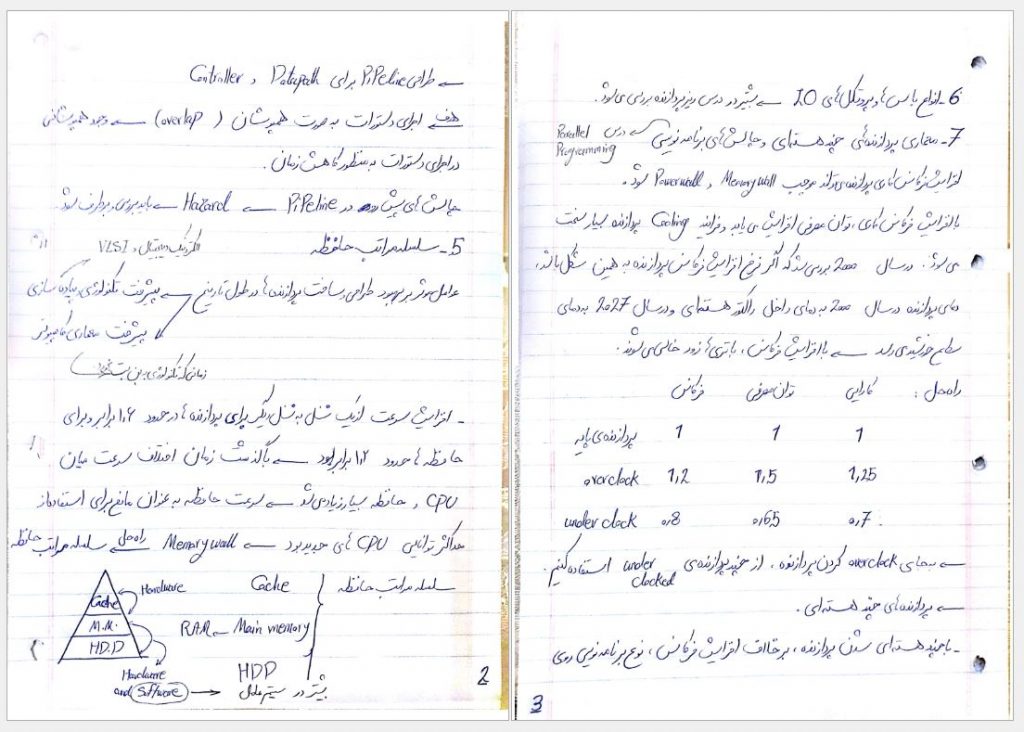 ← طراحی Pipeline برای Datapath و Controller
هدف ← اجرای دستورات به صورت همپوشان (overlap) ← وجود همپوشانی
در اجرای دستورات به منظور کاهش زمان.
چالش های پیش رو در Pipeline ← Hazard ← باید بررسی و برطرف شود
5- سلسله مراتب حافظه
الکترونیک دیجیتال و VLSI
عوامل موثر بر بهبود طراحی و ساخت پردازنده ها در طول تاریخ ← پیشرفت تکنولوژی پیاده سازی
پیشرفت معماری کامپیوتر
زمانی که تکنولوژی به بن بست
- افزایش سرعت از یک نسل به نسل دیگر برای پردازنده ها در حدود ۱,۶ برابر و برای
حافظه ها حدود ۱,۲ برابر بود ← با گذشت زمان اختلاف سرعت میان
CPU و حافظه بسیار زیاد می شود ← سرعت حافظه به عنوان مانع برای استفاده از
حداکثر توانایی CPU های جدید بود ← Memory wall راه حل ← سلسله مراتب حافظه
سلسله مراتب حافظه
Cache
RAM - Main memory
HDD
بیشتر در سیستم عامل
Cache
M.M.
HDD
Hardware
Hardware
and Software →
2
6- انواع باس ها و پروتکل های IO ← بیشتر در درس ریزپردازنده بررسی می شود.
7- معماری پردازنده های چند هسته ای و چالش های برنامه نویسی ← درس Parallel Programming
افزایش فرکانس کاری پردازنده می تواند موجب Memory wall و Power wall شود.
با افزایش فرکانس کاری، توان مصرفی افزایش می یابد و فرایند Cooling پردازنده بسیار سخت
می شود: در سال 2000 بررسی شد که اگر نرخ افزایش فرکانس پردازنده به همین شکل باشد،
دمای پردازنده در سال 2000 به دمای داخل راکتور هسته ای و در سال 2027 به دمای
سطح خورشید می رسد ← با افزایش فرکانس، باتری ها زود خالی می شوند.
راه حل: کارایی توان مصرفی فرکانس
پردازنده ی پایه 1 1 1
overclock 1,2 1,5 1,25
under clock 0,8 0,65 0,7
← به جای overclock کردن پردازنده، از چند پردازنده ی under clocked استفاده کنیم.
← پردازنده های چند هسته ای.
- با چند هسته ای شدن پردازنده، برخلاف افزایش فرکانس، نوع برنامه نویسی روی
3